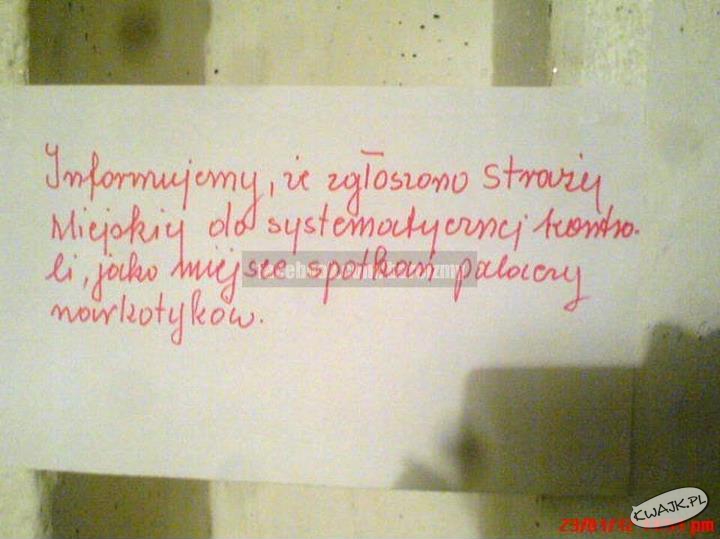 Informujemy, że zgłoszono Straży
Miejskiej do systematycznej kontro-
li, jako miejsce spotkań palaczy
narkotyków.
KWAJK.PL